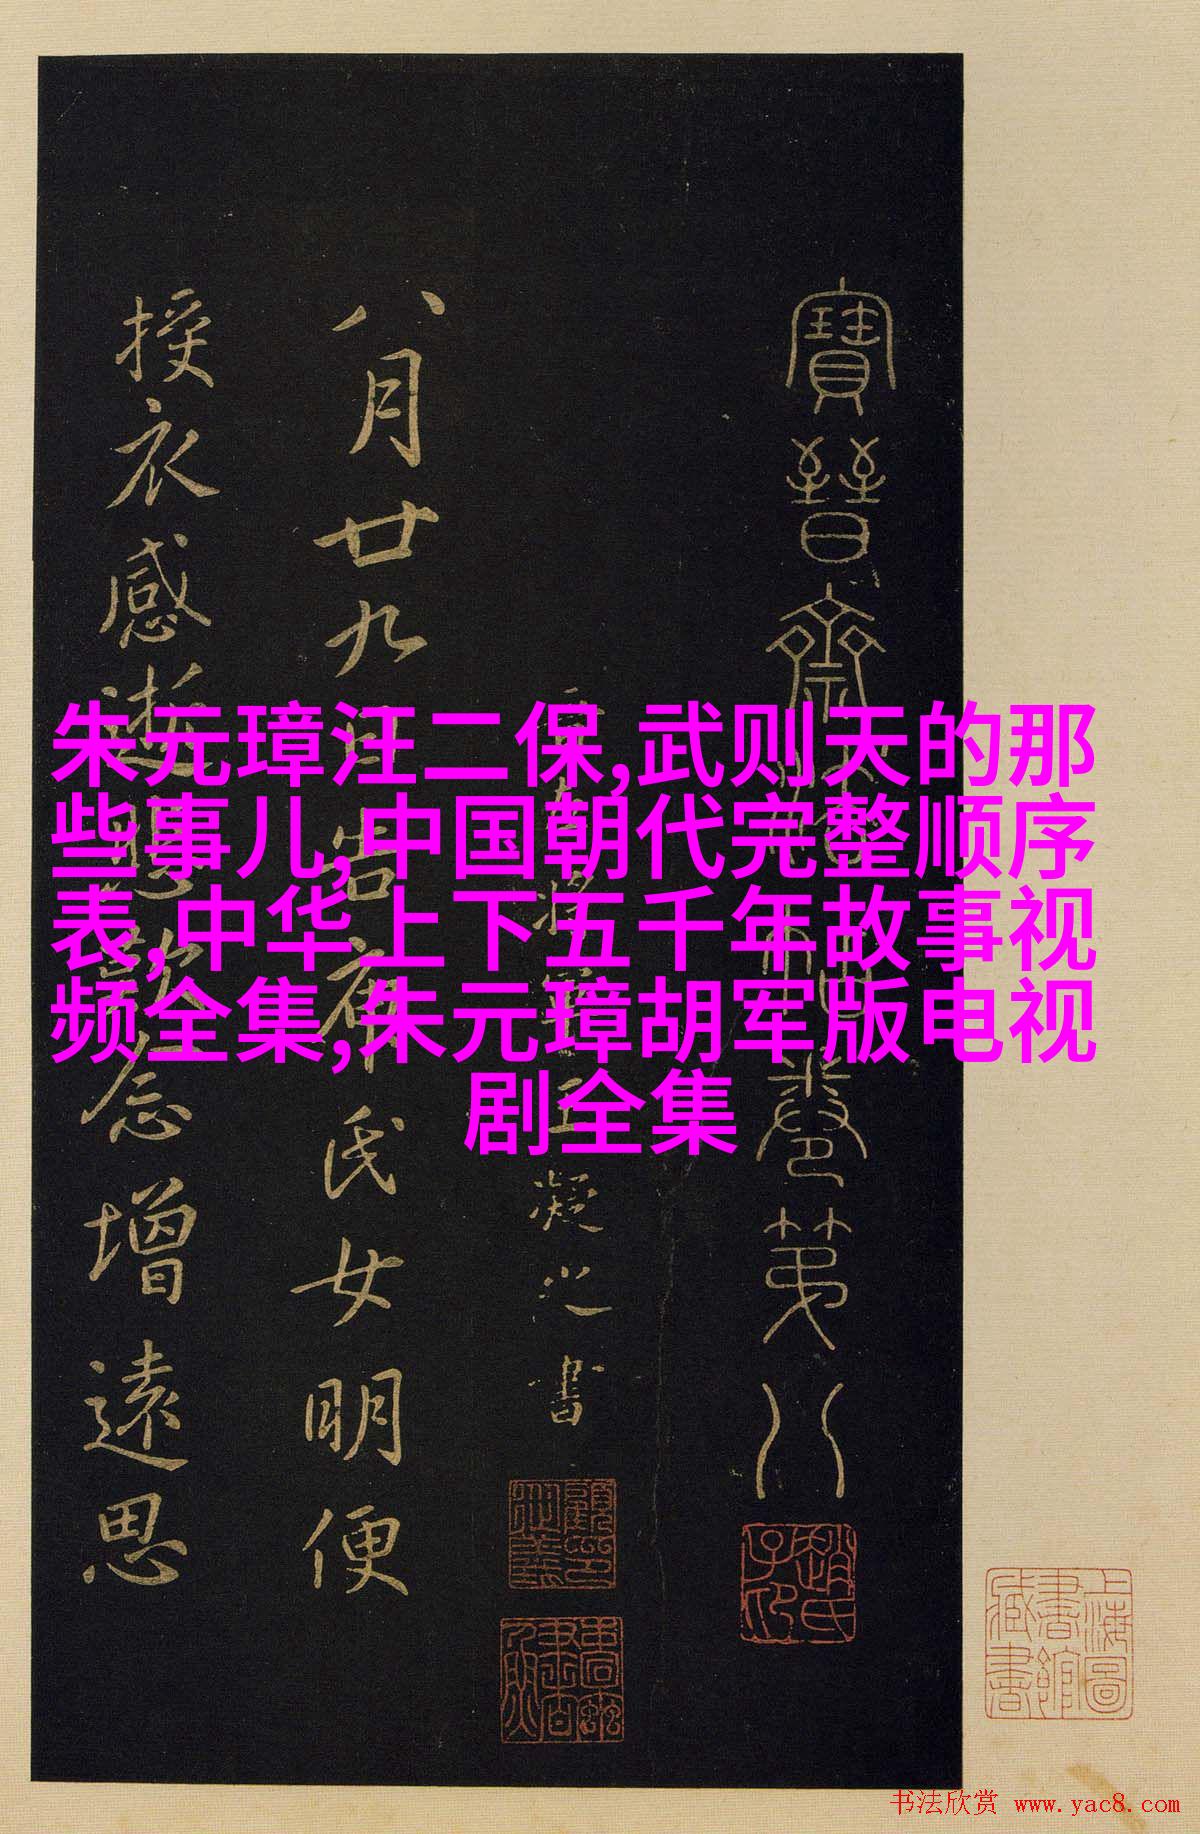 朱元璋汪二保,武则天的那
些事儿,中国朝代完整顺序
表,中华上下五千年故事视
频全集,朱元璋胡军版电视
剧全集
寶晉齋
卷第八
凝之書
八月廿九日告庾氏女明便
授衣感逝悲歎念增遠思
上海圖書館藏書
书法欣赏 www.yac8.com